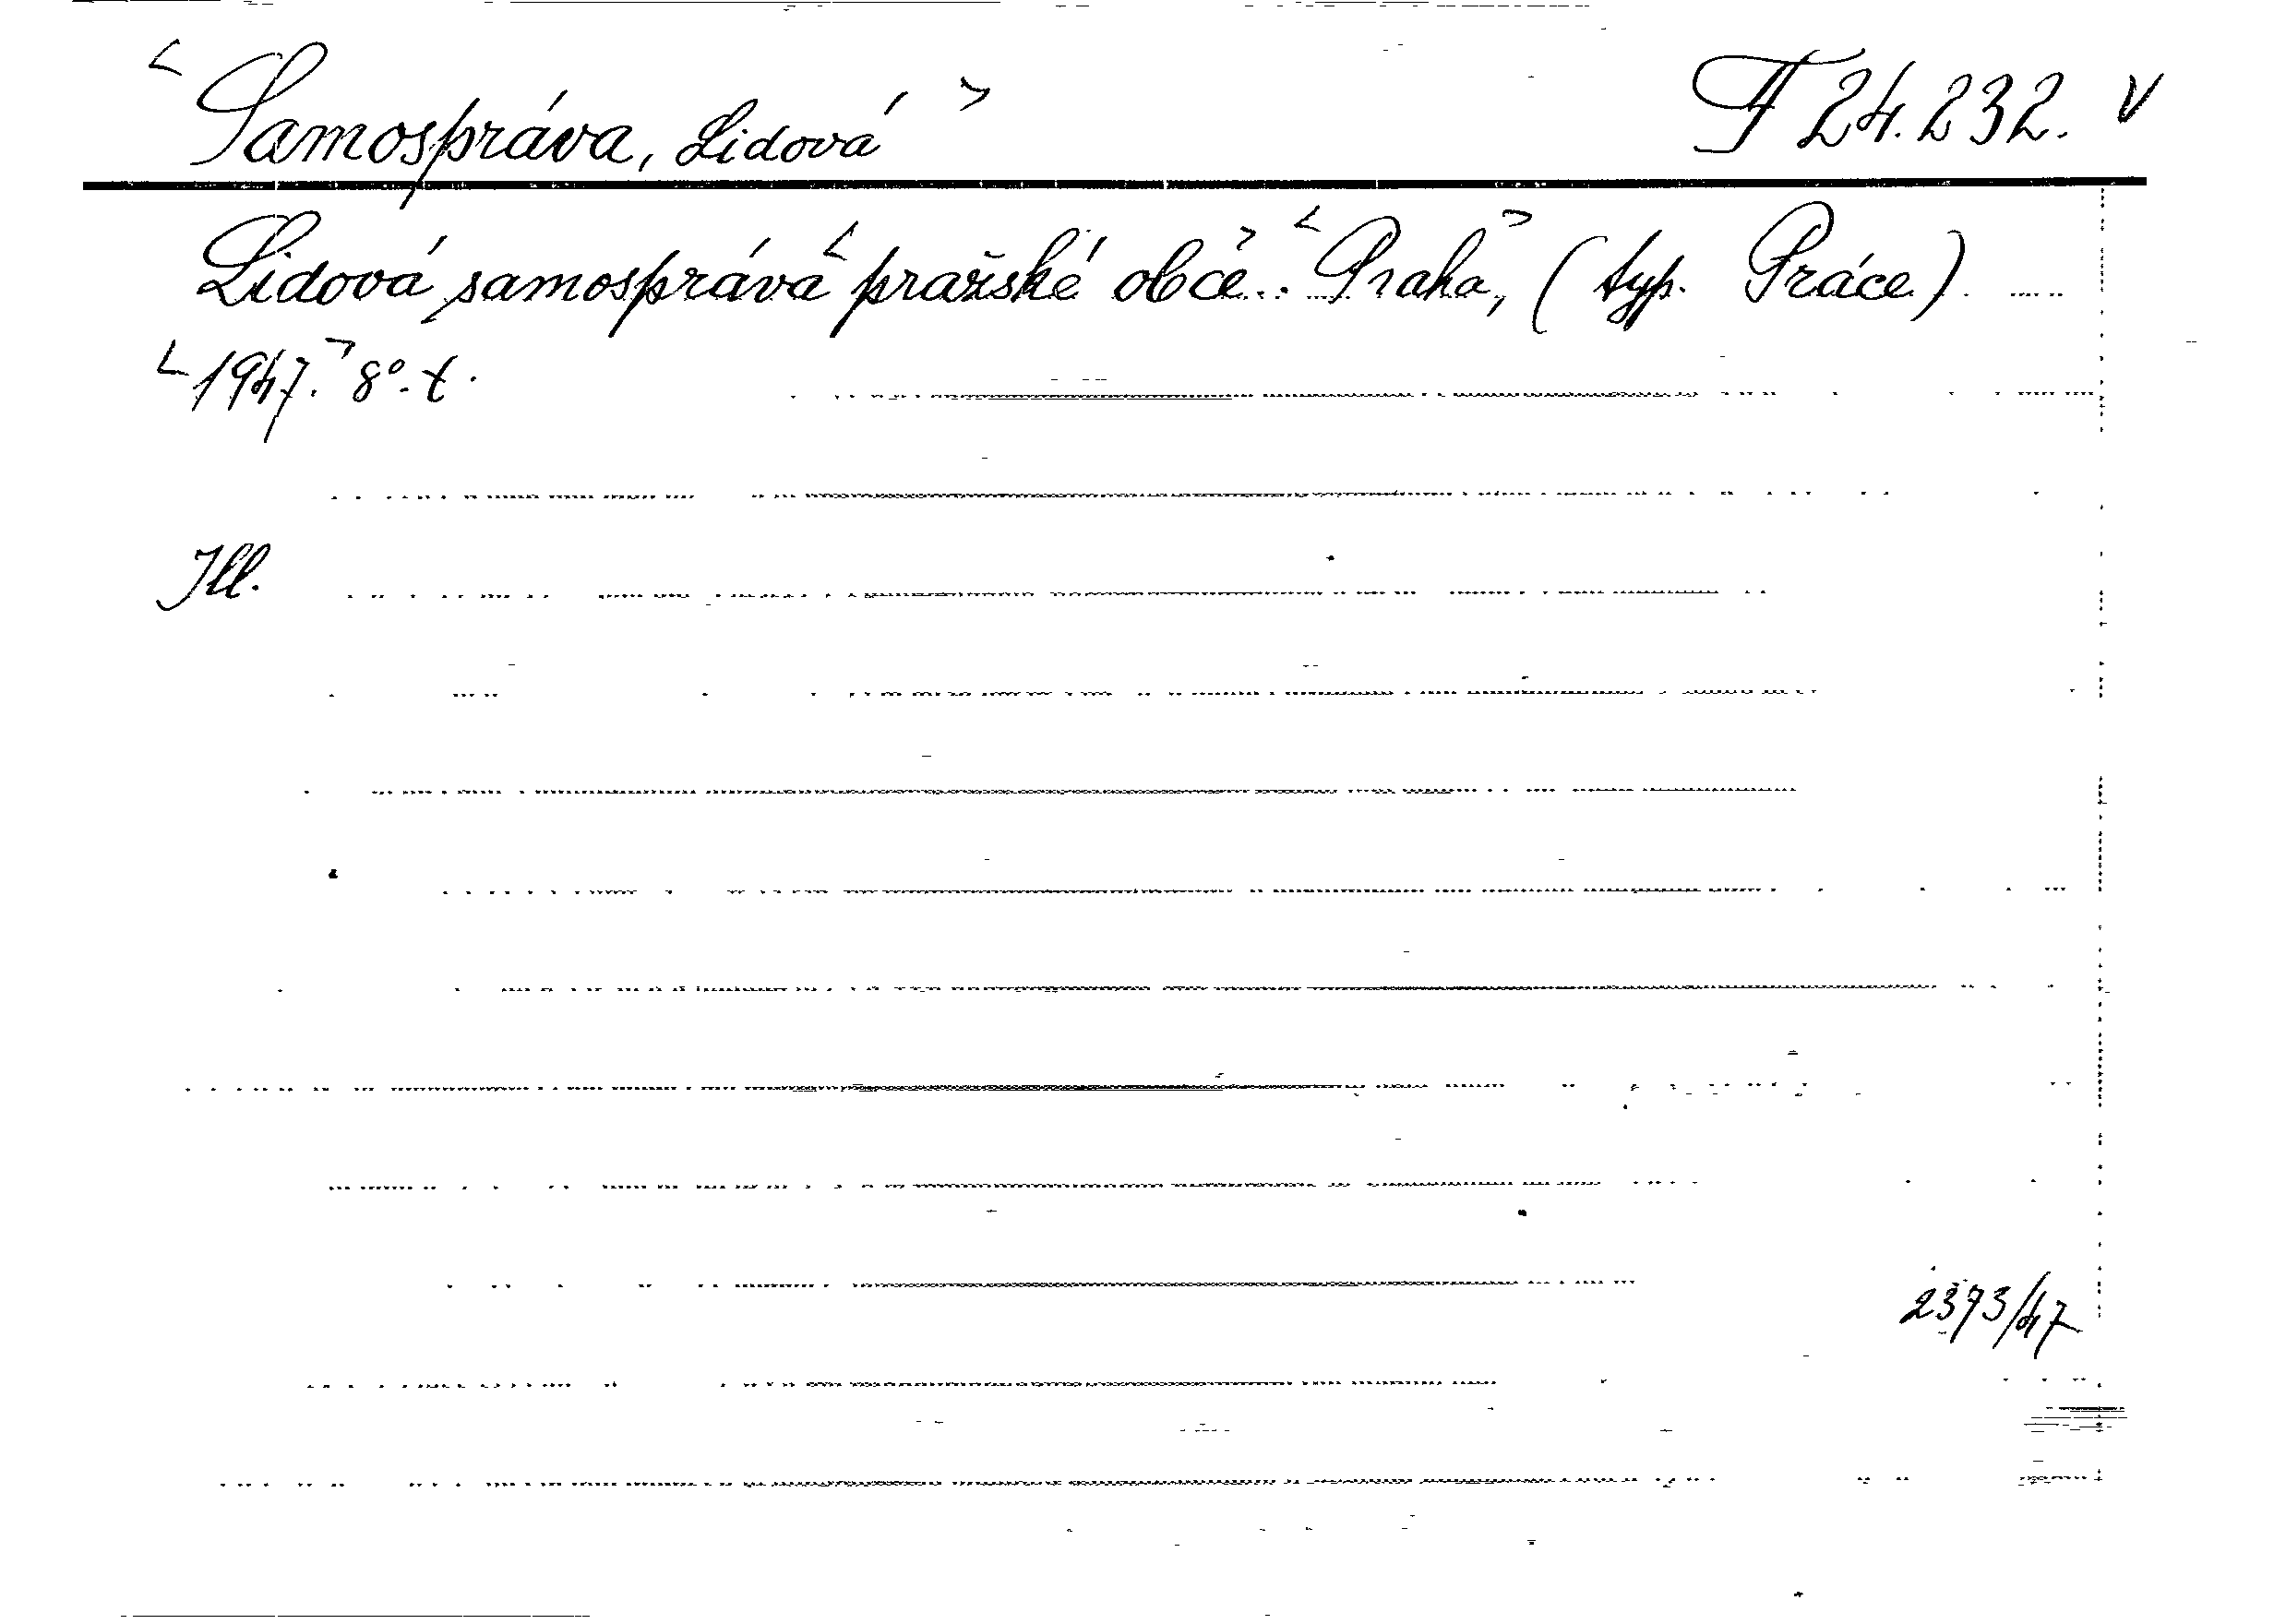 <Samospráva, Lidová> F 24.232. v
Lidová samospráva <pražské obce.> <Praha,> (typ. Práce).
<1947.> 8°. t.
Ill.
2373/47